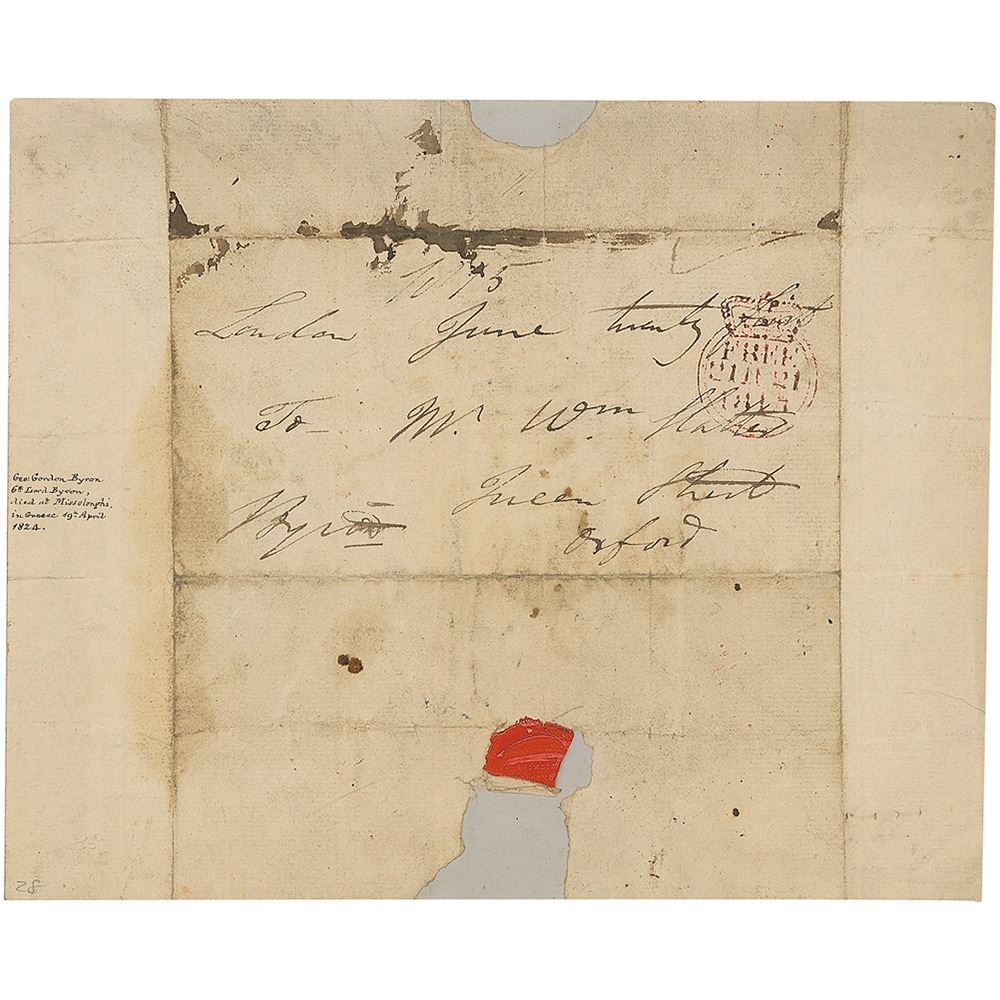 1815
London June twenty first
To Mr. Wm Slatter
Queen Street
Oxford
Byron
FREE
21 JU 21
1815
Geo: Gordon Byron
6th Lord Byron,
died at Missolonghi,
in Greece 19th April
1824.
28